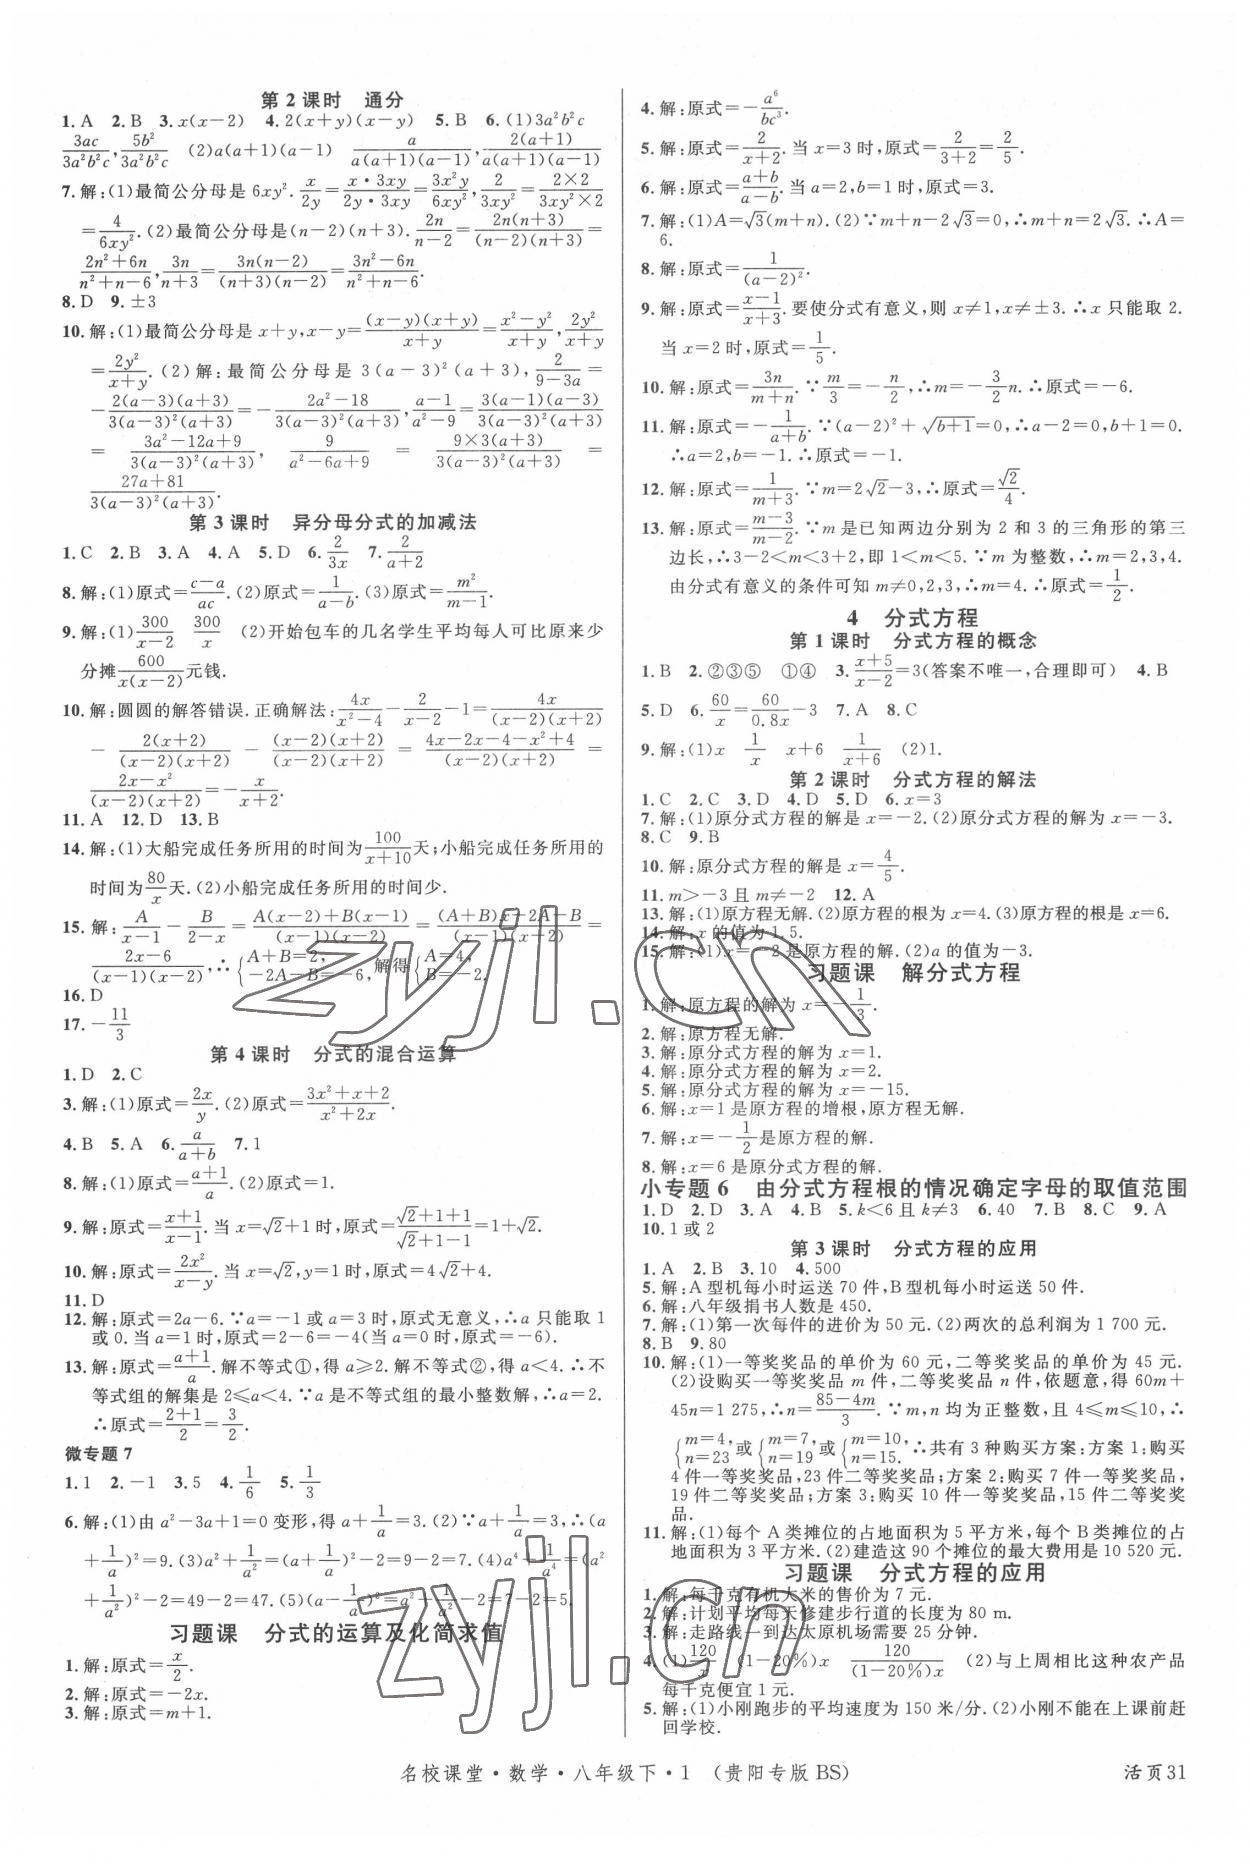 第2课时　通分
1. A　2. B　3. x(x－2)　4. 2(x＋y)(x－y)　5. B　6. (1)3a²b²c
3ac/3a²b²c, 5b²/3a²b²c　(2)a(a＋1)(a－1)　a/a(a＋1)(a－1), 2(a＋1)/a(a＋1)(a－1)
7. 解:(1)最简公分母是 6xy². x/2y＝x·3xy/2y·3xy＝3x²y/6xy², 2/3xy²＝2×2/3xy²×2
＝4/6xy².(2)最简公分母是(n－2)(n＋3). 2n/n－2＝2n(n＋3)/(n－2)(n＋3)＝
2n²＋6n/n²＋n－6, 3n/n＋3＝3n(n－2)/(n＋3)(n－2)＝3n²－6n/n²＋n－6.
8. D　9. ±3
10. 解:(1)最简公分母是 x＋y, x－y＝(x－y)(x＋y)/x＋y＝x²－y²/x＋y, 2y²/x＋y
＝2y²/x＋y.(2)解:最简公分母是 3(a－3)²(a＋3), 2/9－3a＝
－2(a－3)(a＋3)/3(a－3)²(a＋3)＝－2a²－18/3(a－3)²(a＋3), a－1/a²－9＝3(a－1)(a－3)/3(a－3)²(a＋3)
＝3a²－12a＋9/3(a－3)²(a＋3), 9/a²－6a＋9＝9×3(a＋3)/3(a－3)²(a＋3)＝
27a＋81/3(a－3)²(a＋3).
第3课时　异分母分式的加减法
1. C　2. B　3. A　4. A　5. D　6. 2/3x　7. 2/a＋2
8. 解:(1)原式＝c－a/ac.(2)原式＝1/a－b.(3)原式＝m²/m－1.
9. 解:(1)300/x－2　300/x　(2)开始包车的几名学生平均每人可比原来少
分摊600/x(x－2)元钱.
10. 解:圆圆的解答错误. 正确解法:4x/x²－4－2/x－2－1＝4x/(x－2)(x＋2)
－2(x＋2)/(x－2)(x＋2)－(x－2)(x＋2)/(x－2)(x＋2)＝4x－2x－4－x²＋4/(x－2)(x＋2)＝
2x－x²/(x－2)(x＋2)＝－x/x＋2.
11. A　12. D　13. B
14. 解:(1)大船完成任务所用的时间为100/x＋10天;小船完成任务所用的
时间为80/x天.(2)小船完成任务所用的时间少.
15. 解:A/x－1－B/2－x＝A(x－2)＋B(x－1)/(x－1)(x－2)＝(A＋B)x－2A－B/(x－1)(x－2)＝
2x－6/(x－1)(x－2), ∴{A＋B＝2, －2A－B＝－6, 解得{A＝4, B＝－2.
16. D
17. －11/3
第4课时　分式的混合运算
1. D　2. C
3. 解:(1)原式＝2x/y.(2)原式＝3x²＋x＋2/x²＋2x.
4. B　5. A　6. a/a＋b　7. 1
8. 解:(1)原式＝a＋1/a.(2)原式＝1.
9. 解:原式＝x＋1/x－1. 当 x＝√2＋1 时,原式＝√2＋1＋1/√2＋1－1＝1＋√2.
10. 解:原式＝2x²/x－y. 当 x＝√2, y＝1 时,原式＝4√2＋4.
11. D
12. 解:原式＝2a－6. ∵a＝－1 或 a＝3 时,原式无意义,∴a 只能取 1
或 0. 当 a＝1 时,原式＝2－6＝－4(当 a＝0 时,原式＝－6).
13. 解:原式＝a＋1/a. 解不等式①,得 a≥2. 解不等式②,得 a＜4. ∴不
等式组的解集是 2≤a＜4. ∵a 是不等式组的最小整数解,∴a＝2.
∴原式＝2＋1/2＝3/2.
微专题 7
1. 1　2. －1　3. 5　4. 1/6　5. 1/3
6. 解:(1)由 a²－3a＋1＝0 变形,得 a＋1/a＝3.(2)∵a＋1/a＝3,∴(a
＋1/a)²＝9.(3)a²＋1/a²＝(a＋1/a)²－2＝9－2＝7.(4)a⁴＋1/a⁴＝(a²
＋1/a²)²－2＝49－2＝47.(5)(a－1/a)²＝a²＋1/a²－2＝7－2＝5.
习题课　分式的运算及化简求值
1. 解:原式＝x/2.
2. 解:原式＝－2x.
3. 解:原式＝m＋1.
4. 解:原式＝－a⁶/bc³.
5. 解:原式＝2/x＋2. 当 x＝3 时,原式＝2/3＋2＝2/5.
6. 解:原式＝a＋b/a－b. 当 a＝2, b＝1 时,原式＝3.
7. 解:(1)A＝√3(m＋n).(2)∵m＋n－2√3＝0,∴m＋n＝2√3. ∴A＝
6.
8. 解:原式＝1/(a－2)².
9. 解:原式＝x－1/x＋3. 要使分式有意义,则 x≠1, x≠±3. ∴x 只能取 2.
当 x＝2 时,原式＝1/5.
10. 解:原式＝3n/m＋n. ∵m/3＝－n/2,∴m＝－3/2n. ∴原式＝－6.
11. 解:原式＝－1/a＋b. ∵(a－2)²＋√b＋1＝0,∴a－2＝0, b＋1＝0.
∴a＝2, b＝－1. ∴原式＝－1.
12. 解:原式＝1/m＋3. ∵m＝2√2－3,∴原式＝√2/4.
13. 解:原式＝m－3/m－2. ∵m 是已知两边分别为 2 和 3 的三角形的第三
边长,∴3－2＜m＜3＋2,即 1＜m＜5. ∵m 为整数,∴m＝2,3,4.
由分式有意义的条件可知 m≠0,2,3,∴m＝4. ∴原式＝1/2.
4　分式方程
第1课时　分式方程的概念
1. B　2. ②③⑤　①④　3. x＋5/x－2＝3(答案不唯一,合理即可)　4. B
5. D　6. 60/x＝60/0.8x－3　7. A　8. C
9. 解:(1)x　1/x　x＋6　1/x＋6　(2)1.
第2课时　分式方程的解法
1. C　2. C　3. D　4. D　5. D　6. x＝3
7. 解:(1)原分式方程的解是 x＝－2.(2)原分式方程的解是 x＝－3.
8. C　9. B
10. 解:原分式方程的解是 x＝4/5.
11. m＞－3 且 m≠－2　12. A
13. 解:(1)原方程无解.(2)原方程的根为 x＝4.(3)原方程的根是 x＝6.
14. 解:x 的值为 1.5.
15. 解:(1)x＝－2 是原方程的解.(2)a 的值为－3.
习题课　解分式方程
1. 解:原方程的解为 x＝－1/3.
2. 解:原方程无解.
3. 解:原分式方程的解为 x＝1.
4. 解:原分式方程的解为 x＝2.
5. 解:原分式方程的解为 x＝－15.
6. 解:x＝1 是原方程的增根,原方程无解.
7. 解:x＝－1/2是原方程的解.
8. 解:x＝6 是原分式方程的解.
小专题 6　由分式方程根的情况确定字母的取值范围
1. D　2. D　3. A　4. B　5. k＜6 且 k≠3　6. 40　7. B　8. C　9. A
10. 1 或 2
第3课时　分式方程的应用
1. A　2. B　3. 10　4. 500
5. 解:A 型机每小时运送 70 件,B 型机每小时运送 50 件.
6. 解:八年级捐书人数是 450.
7. 解:(1)第一次每件的进价为 50 元.(2)两次的总利润为 1 700 元.
8. B　9. 80
10. 解:(1)一等奖奖品的单价为 60 元,二等奖奖品的单价为 45 元.
(2)设购买一等奖奖品 m 件,二等奖奖品 n 件,依题意,得 60m＋
45n＝1 275,∴n＝85－4m/3. ∵m,n 均为正整数,且 4≤m≤10,∴
{m＝4, n＝23 或{m＝7, n＝19 或{m＝10, n＝15. ∴共有 3 种购买方案:方案 1:购买
4 件一等奖奖品,23 件二等奖奖品;方案 2:购买 7 件一等奖奖品,
19 件二等奖奖品;方案 3:购买 10 件一等奖奖品,15 件二等奖奖
品.
11. 解:(1)每个 A 类摊位的占地面积为 5 平方米,每个 B 类摊位的占
地面积为 3 平方米.(2)建造这 90 个摊位的最大费用是 10 520 元.
习题课　分式方程的应用
1. 解:每千克有机大米的售价为 7 元.
2. 解:计划平均每天修建步行道的长度为 80 m.
3. 解:走路线一到达太原机场需要 25 分钟.
4. (1)120/x　(1－20%)x　120/(1－20%)x　(2)与上周相比这种农产品
每千克便宜 1 元.
5. 解:(1)小刚跑步的平均速度为 150 米/分.(2)小刚不能在上课前赶
回学校.
名校课堂·数学·八年级下·1　(贵阳专版 BS)　活页31
zyjl.cn
zyjl.cn